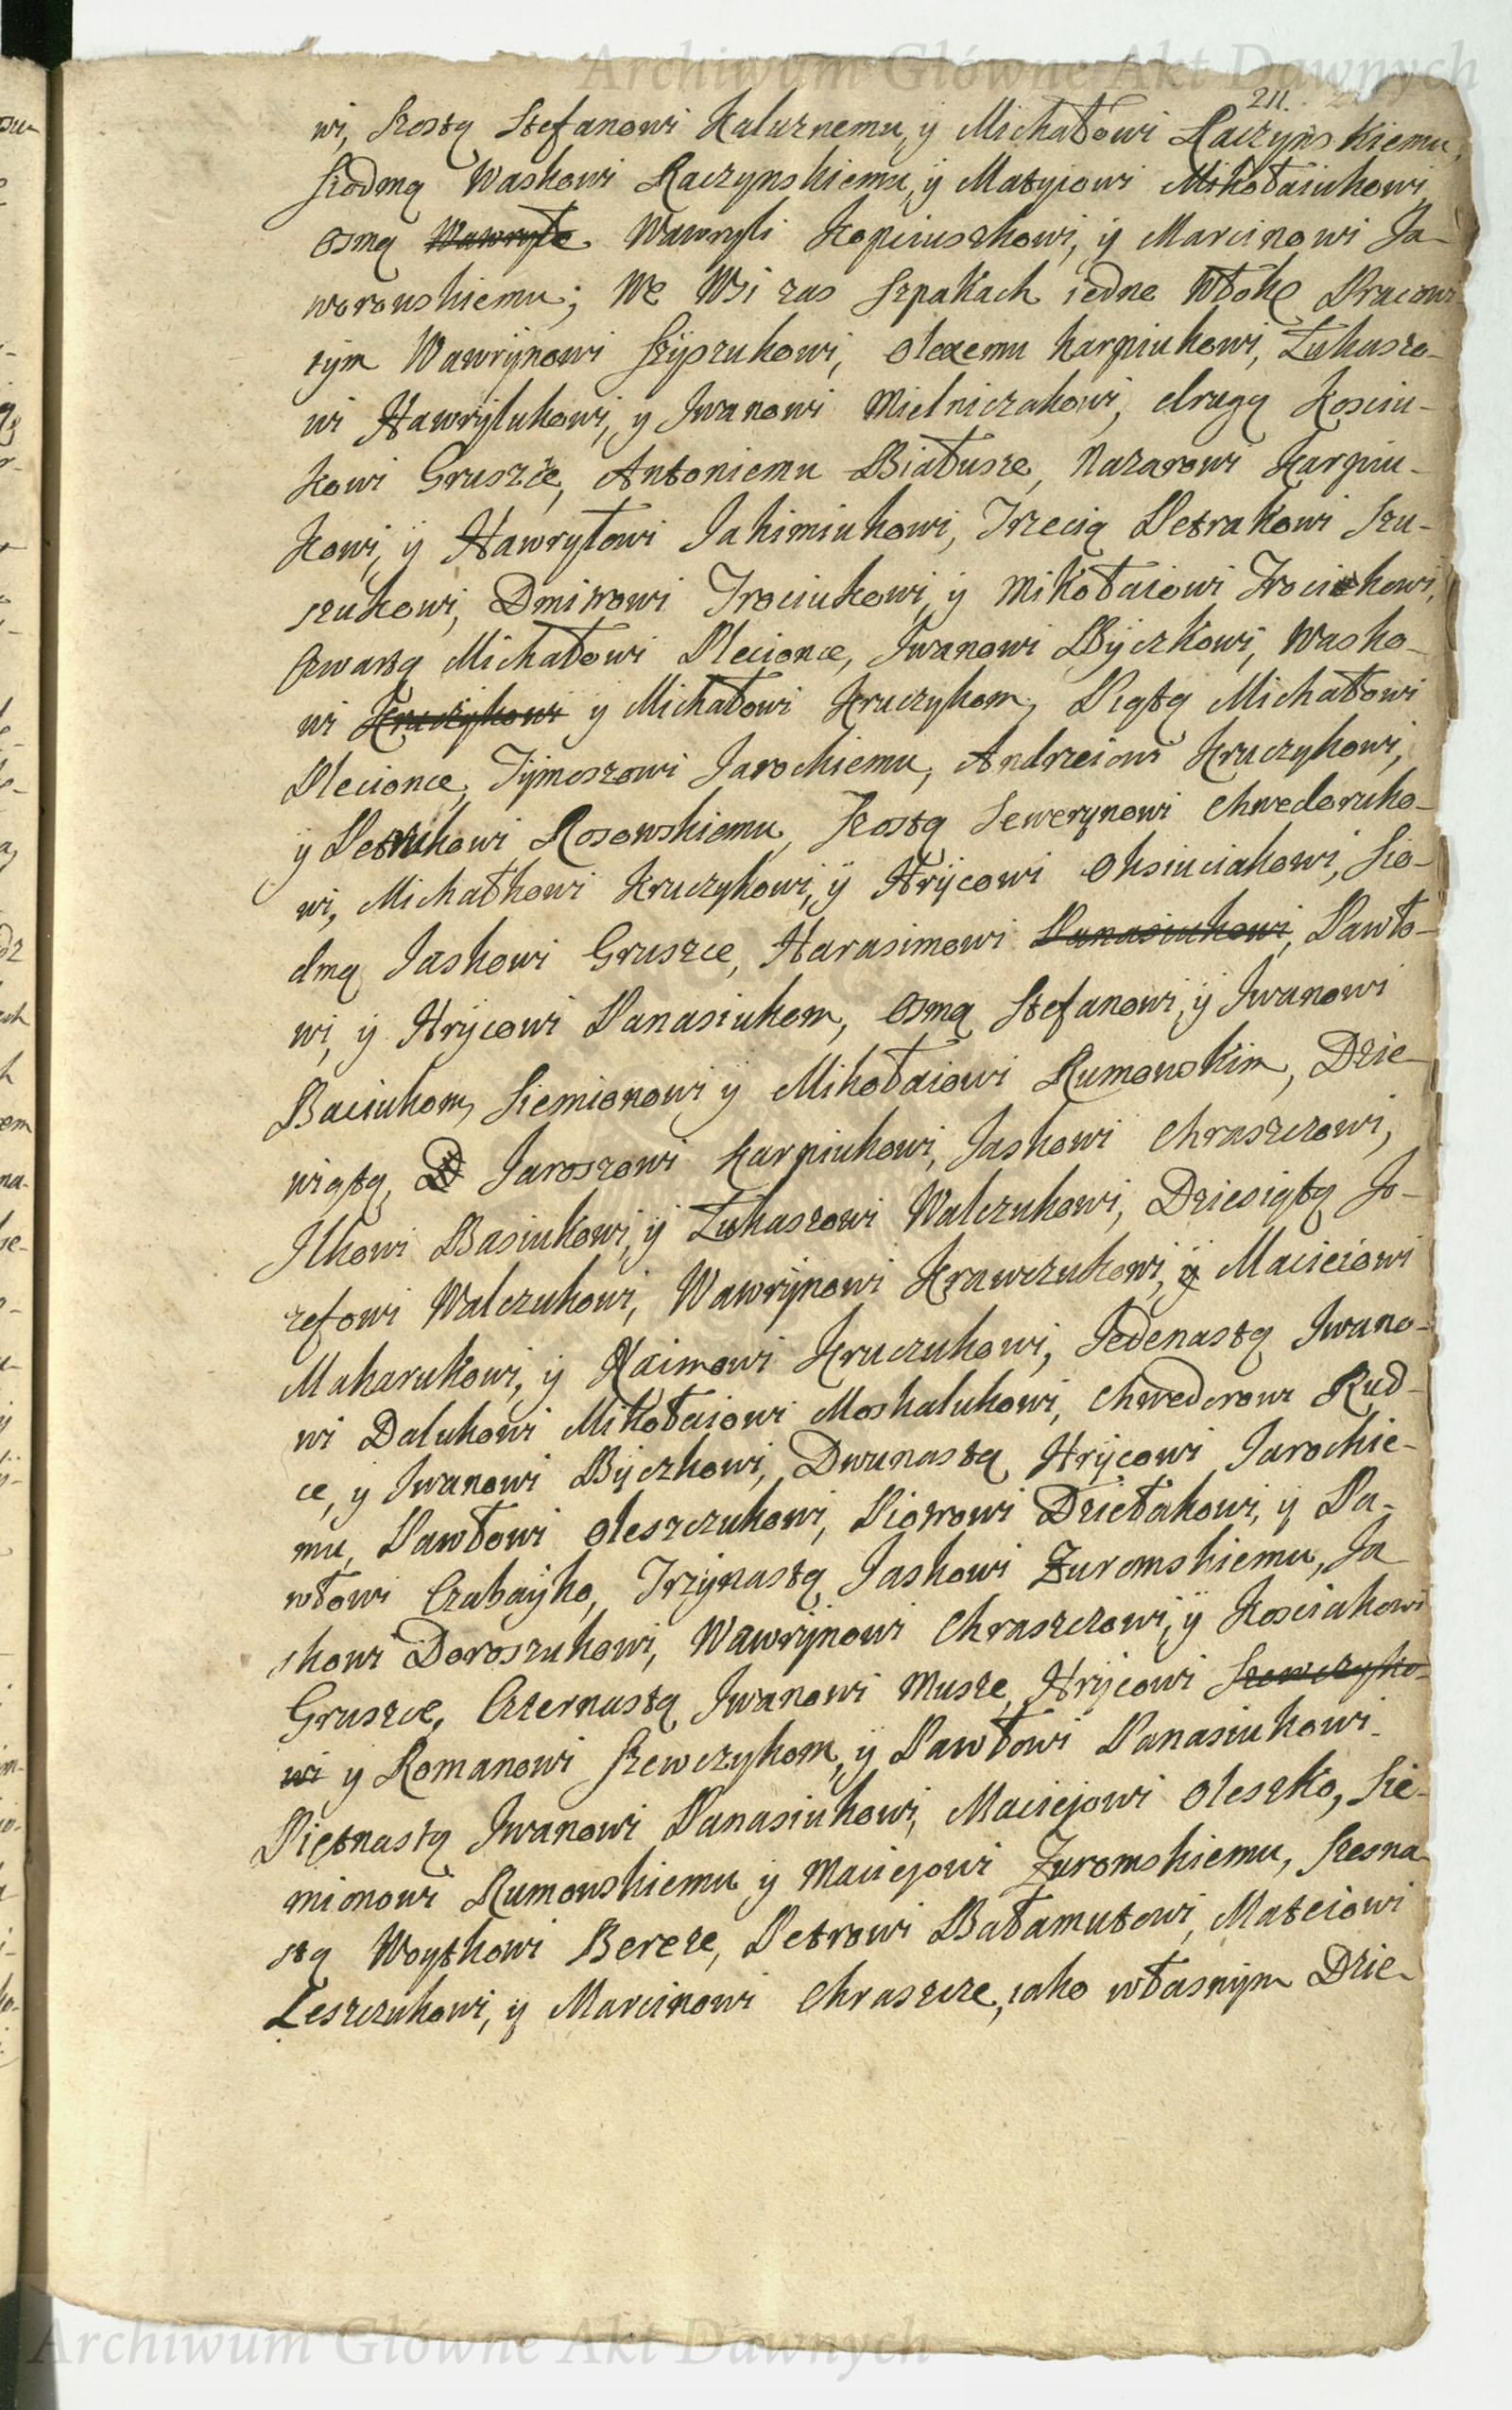 Archiwum Główne Akt Dawnych
211.
wi, Szostą Stefanowi Kaluznemu, ÿ Michałowi Raczÿnskiemu,
Siodmą Waskowi Raczynskiemu, ÿ Matyiowi Mikołaiukowi,
osmą Wawryło Wawryli Kopciuszkowi, ÿ Marcinowi Ja-
woronskiemu; We Wsi zas Szpakach iedne Włokę Pracowi-
tÿm Wawrÿnowi Szÿszukowi, Olexemu Karpiukowi, Łukaszo-
wi Hawrÿlukowi, ÿ Jwanowi Mielniczakowi, drugą Kosciu-
kowi Gruszce, Antoniemu Białusze, Nazarowi Karpiu-
kowi, ÿ Hawryłowi Jakimiukowi, Trzecią Petrakowi Szu-
szukowi, Dmitrowi Trociukowi, ÿ Mikołaiowi Trociukowi,
Czwartą Michałowi Plecionce, Jwanowi Bÿczkowi, Wasko-
wi Kruczÿkowi ÿ Michałowi Kruczykom, Piątą Michałowi
Plecionce, Tÿmoszowi Jarockiemu, Andrzeiowi Kruczykowi,
ÿ Petrukowi Rosowskiemu, Szostą Sewerynowi Chwedoruko-
wi, Michałkowi Kruczykowi, ÿ Hrÿcowi Oksiuciakowi, Sio-
dmą Jaskowi Gruszce, Harasimowi Panasiukowi, Pawło-
wi, ÿ Hrÿcowi Panasiukom, Osmą Stefanowi, ÿ Jwanowi
Baciukom, Siemionowi ÿ Mikołaiowi Rumowskim, Dzie-
wiątą, D Jaroszowi Karpiukowi, Jaskowi Chraszczowi,
Jlkowi Basiukowi, ÿ Łukaszowi Walczukowi, Dziesiątą Jo-
zefowi Walczukowi, Wawrÿnowi Krawczukowi, ÿ Macieiowi
Makarukowi, ÿ Naimowi Kruczukowi, Jedenastą Jwano-
wi Dalukowi Mikołaiowi Moskalukowi, Chwedorowi Rud-
ce, ÿ Jwanowi Bÿczkowi, Dwunastą Hrÿcowi Jarockie-
mu, Pawłowi Oleszczukowi, Piotrowi Dziełakowi, ÿ Pa-
włowi Czabaÿko, Trzÿnastą Jaskowi Zuromskiemu, Ja
skowi Doroszukowi, Wawrÿnowi Chraszczowi, ÿ Kosciukowi
Gruszce, Czternastą Jwanowi Musze, Hrÿcowi Szewczyko-
wi ÿ Romanowi Szewczykom, ÿ Pawłowi Panasiukowi.
Piętnastą Jwanowi Panasiukowi, Maciejowi Oleszko, Sie-
mionowi Rumowskiemu ÿ Maciejowi Zuromskiemu, Szesna
stą Woytkowi Bereze, Petrowi Bałamutowi, Mateiowi
Leszczukowi, ÿ Marcinowi Chraszcze, iako własnÿm Dzie-
Archiwum Główne Akt Dawnych